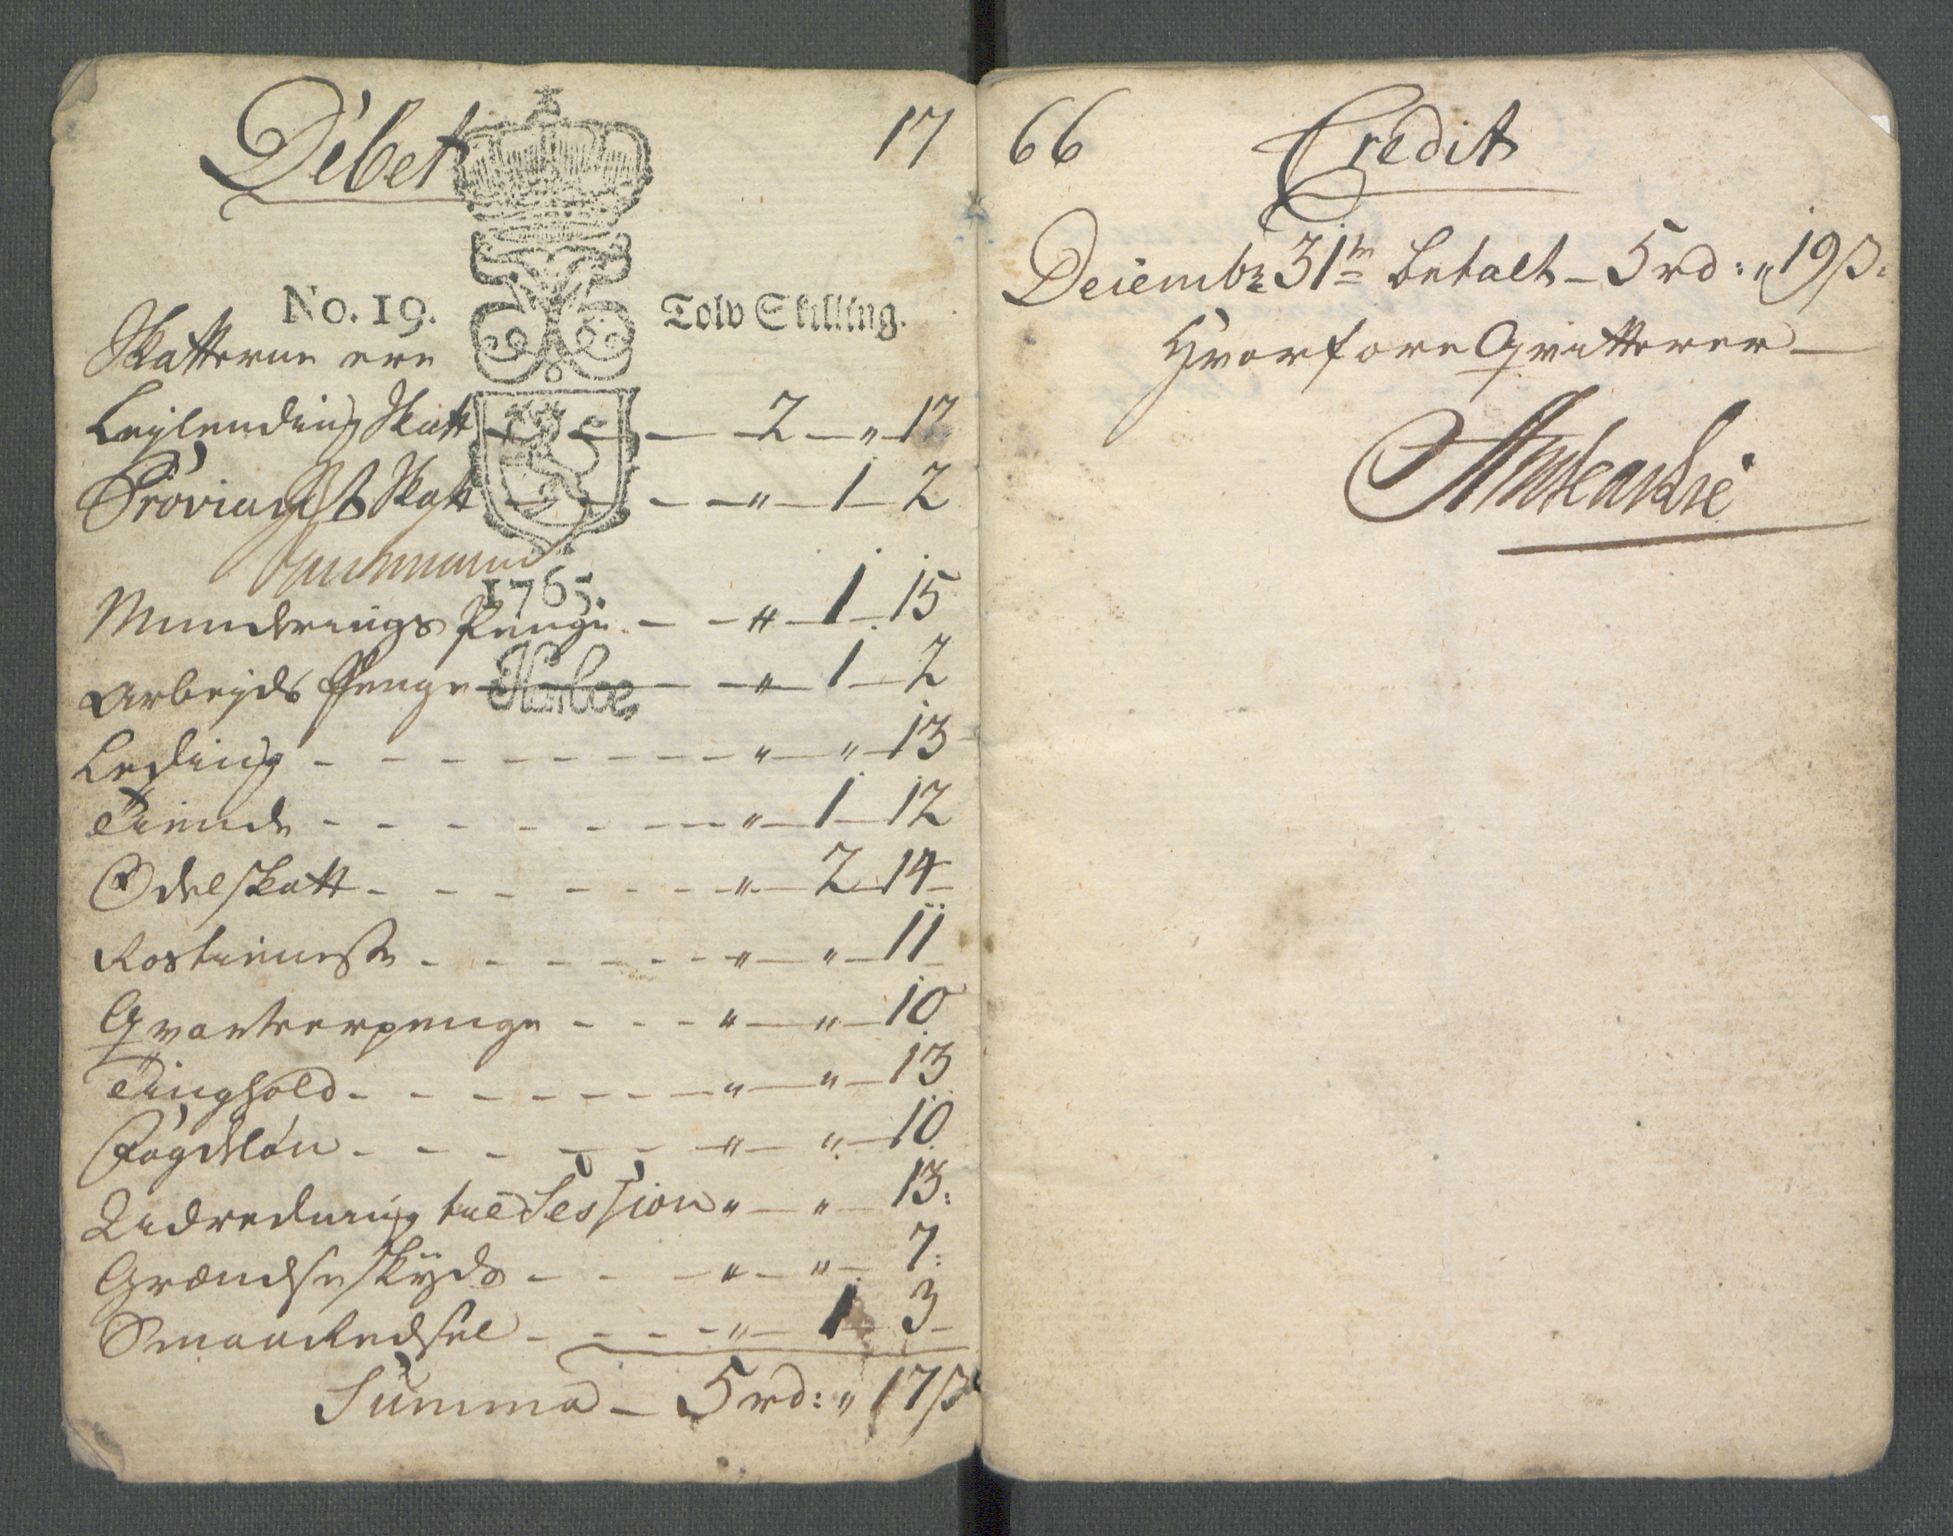 Debet 17
No. 19. Tolv Skilling.
Skatterne ere
Leylending Skatt — — 2 — „ 17
Proviant Skatt — — „ — 1 — 2
1765.
Munderings Penge — — „ — 1 — 15
Arbeyds Penge — — „ — 1 — 2
Leding - - - - - - - „ — „ — 13
Tiende - - - - - - — „ — 1 — 12
Odelskatt - - - - - - „ — 2 14
Rostieneste - - - - - - „ — „ — 11
Qvarteerpenge - - - - „ — „ — 10
Tinghold - - - - - - — „ — „ — 13
Fogdeløn - - - - - — „ — „ — 10
Udredning til Session „ — „ — 13:
Grændseskyds - - — „ — „ — 7:
Smaa Redsel - - - - „ — 1 3
Summa — 5 rd: „ 17 ß
66 Credit
Decembr 31te betalt — 5 rd: „ 19 ß:
Hvorfore Qvitterer —